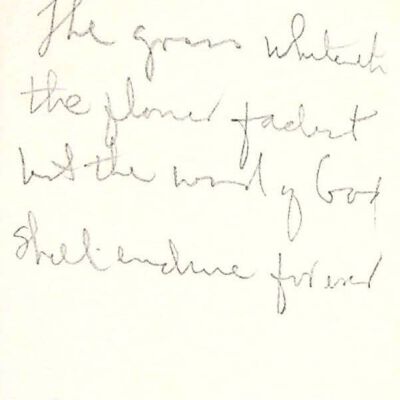 The grass whitereth
the flower fadest
but the word of God
shall endure forever